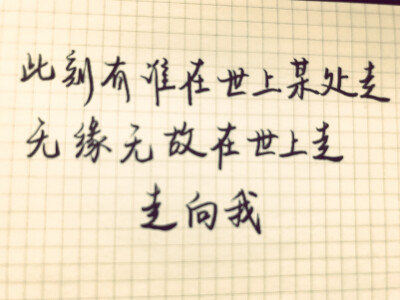 此刻有谁在世上某处走
无缘无故在世上走
走向我